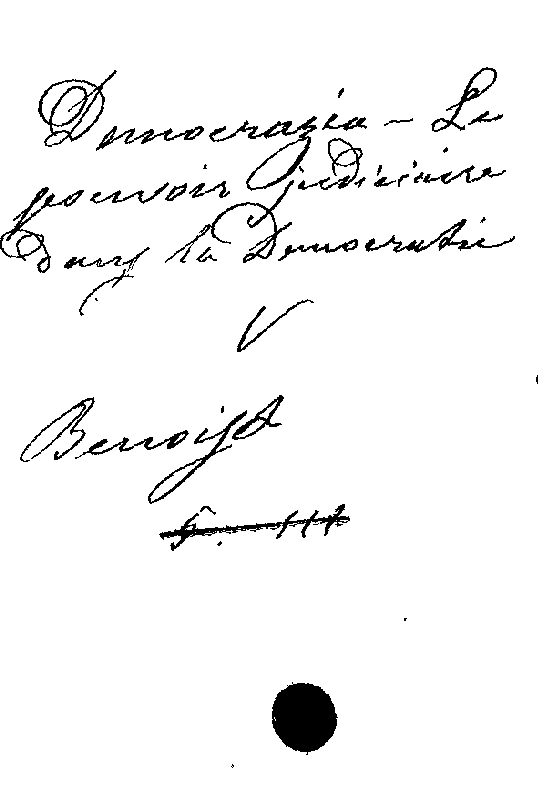 Democrazia - Le
pouvoir judiciaire
dans la Democratie
V
Benoist